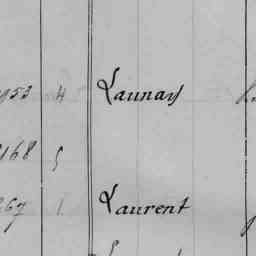 4 Launay
168 5
267 1 Laurent